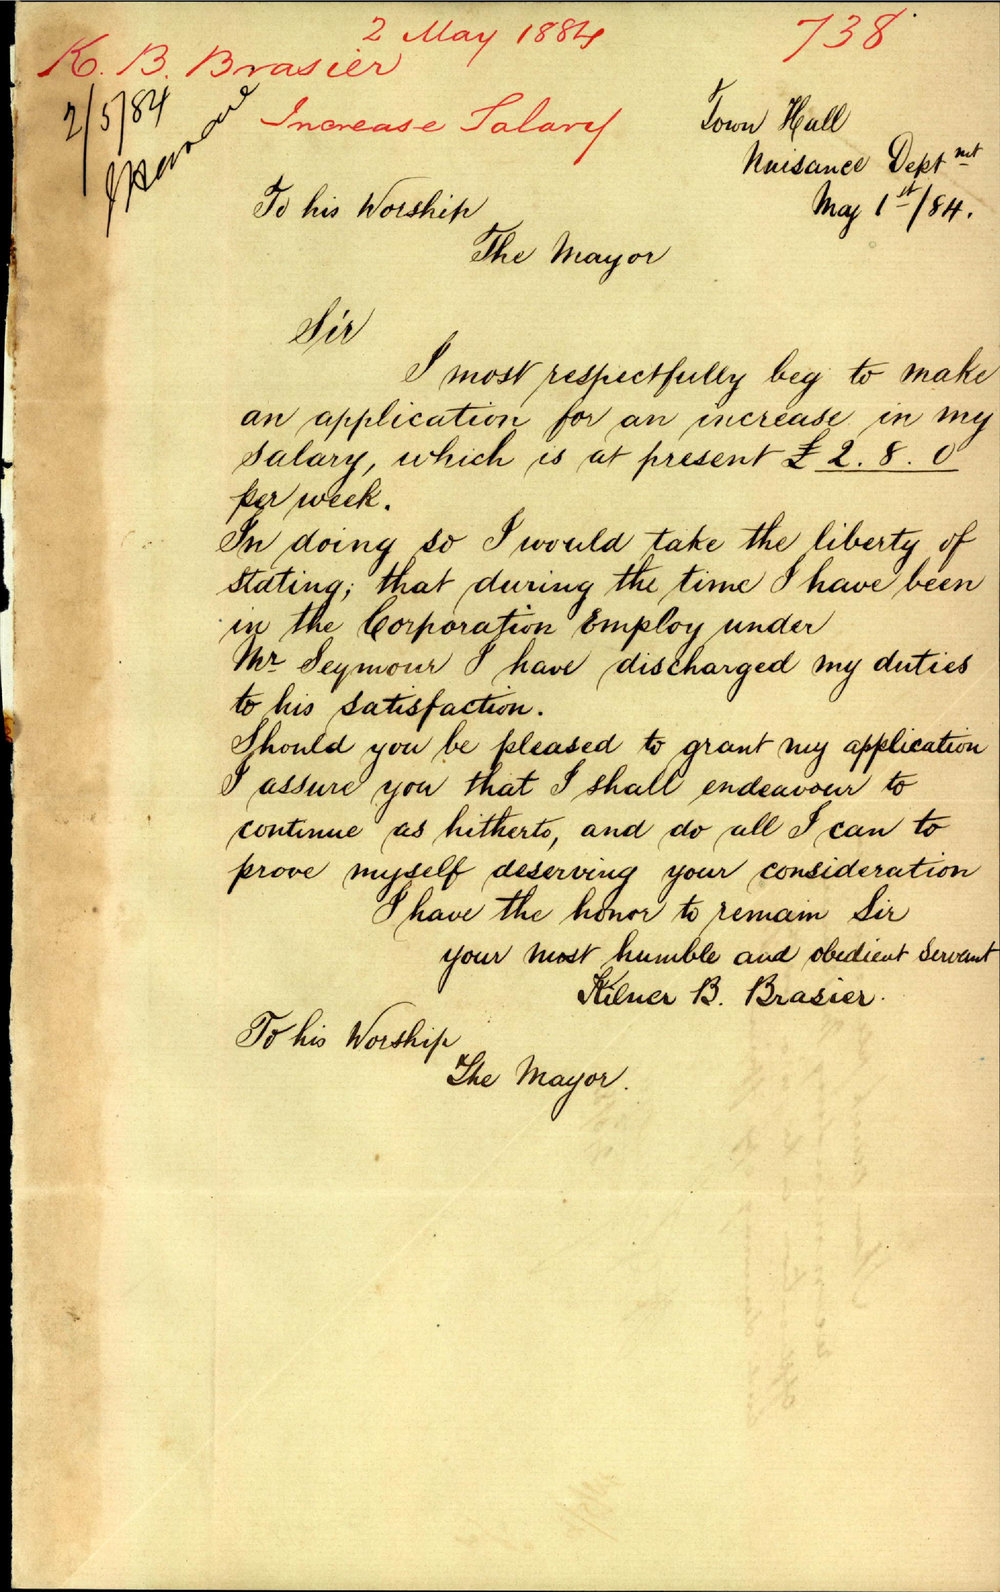 2 May 1884
738
K. B. Brasier
2/5/84
Increase Salary
Town Hall
Nuisance Deptmt
May 1st/84.
To his Worship
The Mayor
Sir
I most respectfully beg to make
an application for an increase in my
salary, which is at present £2.8.0
per week.
In doing so I would take the liberty of
stating; that during the time I have been
in the Corporation Employ under
Mr Seymour I have discharged my duties
to his satisfaction.
Should you be pleased to grant my application
I assure you that I shall endeavour to
continue as hitherto, and do all I can to
prove myself deserving your consideration
I have the honor to remain Sir
your most humble and obedient Servant
Kilner B. Brasier.
To his Worship
The Mayor.